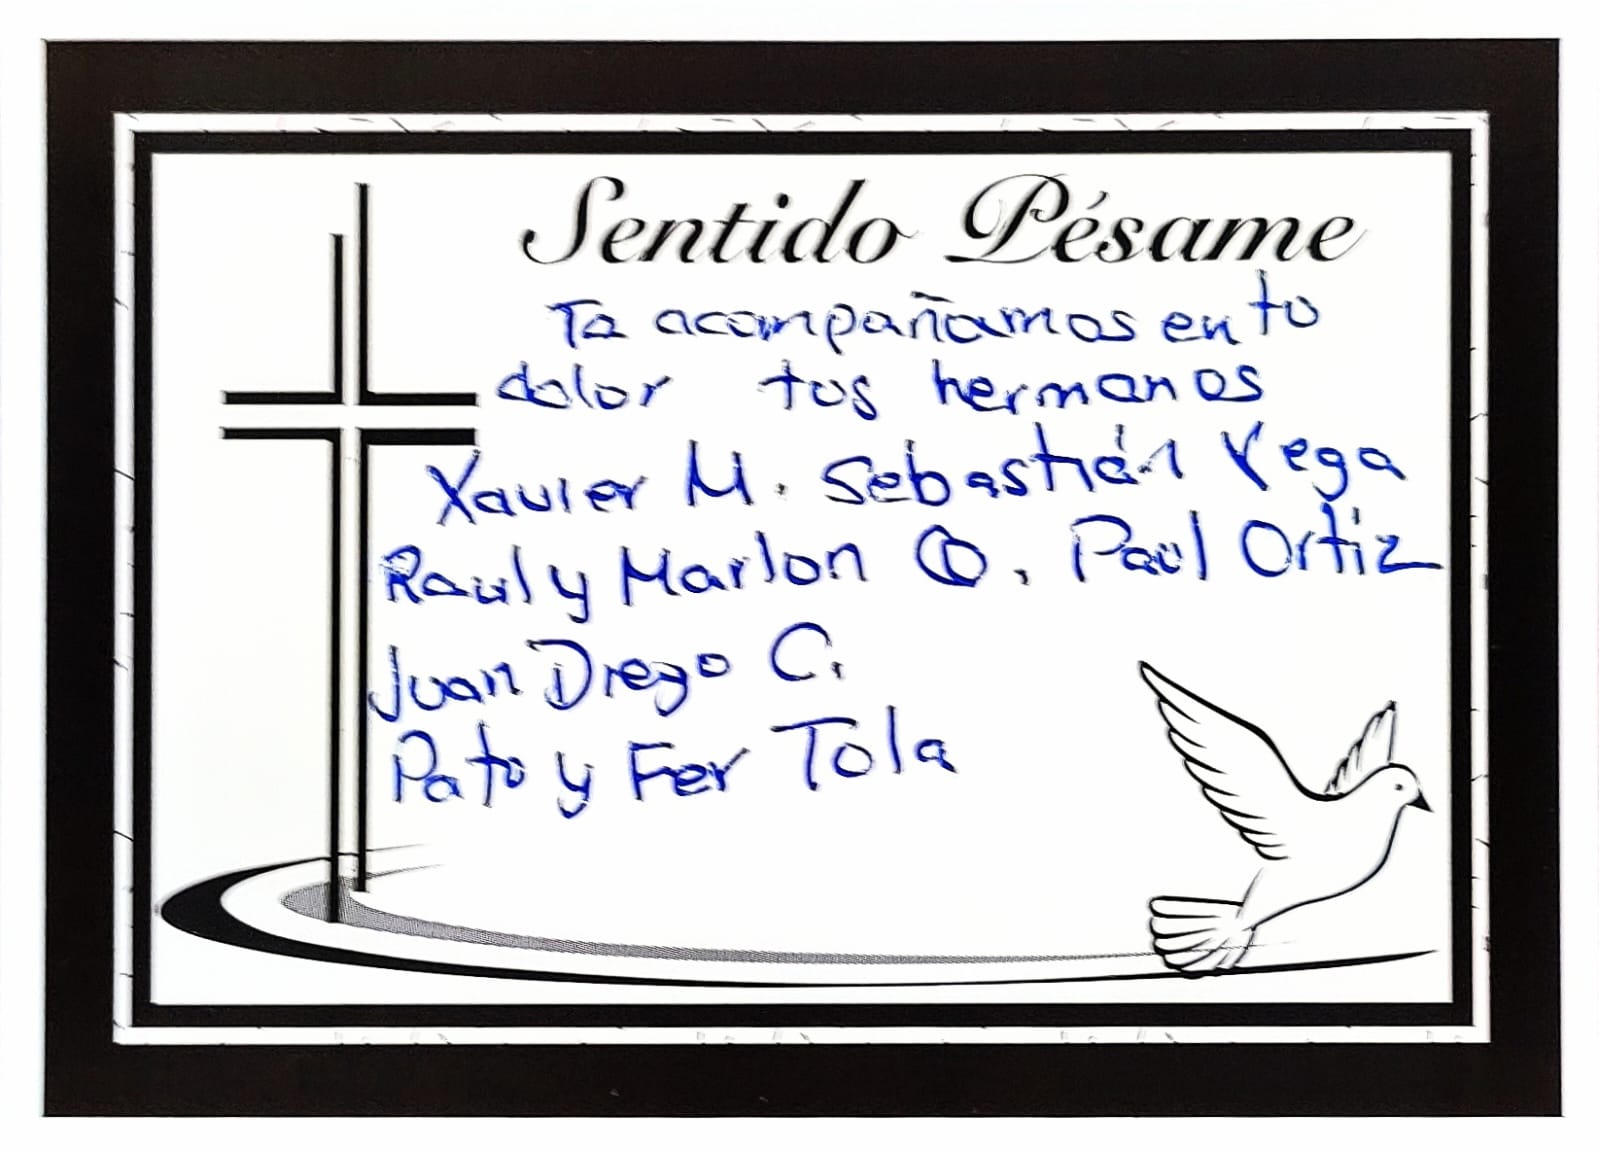 Sentido Pésame
Te acompañamos en tu
dolor tus hermanos
Xavier M. Sebastián Vega
Raul y Marlon O. Paul Ortiz
Juan Diego C.
Pato y Fer Tola